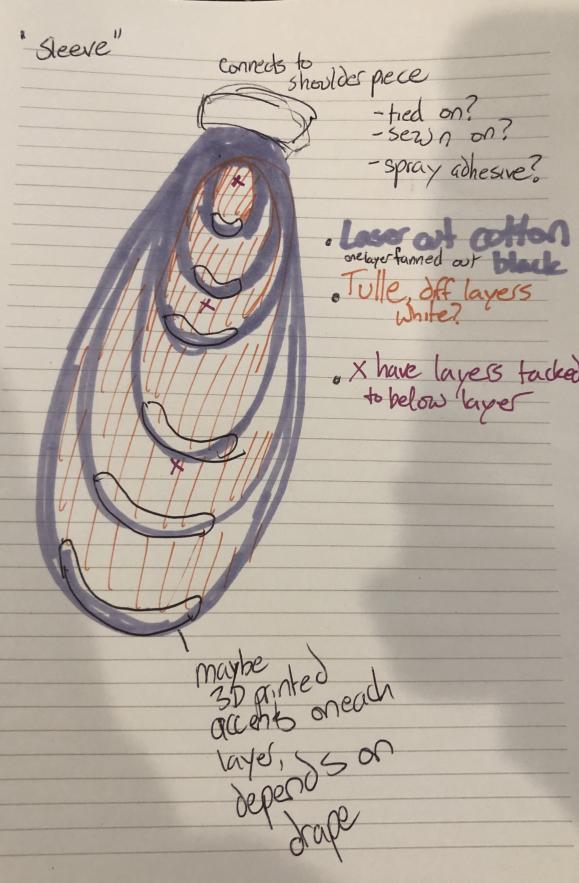 "Sleeve"
Connects to
shoulder piece
- tied on?
- sewn on?
- spray adhesive?
• Laser cut cotton
one layer fanned out black
• Tulle, off layers
white?
x
• x have layers tacked
to below layer
x
x
maybe
3D printed
accents on each
layer,
depends on
drape